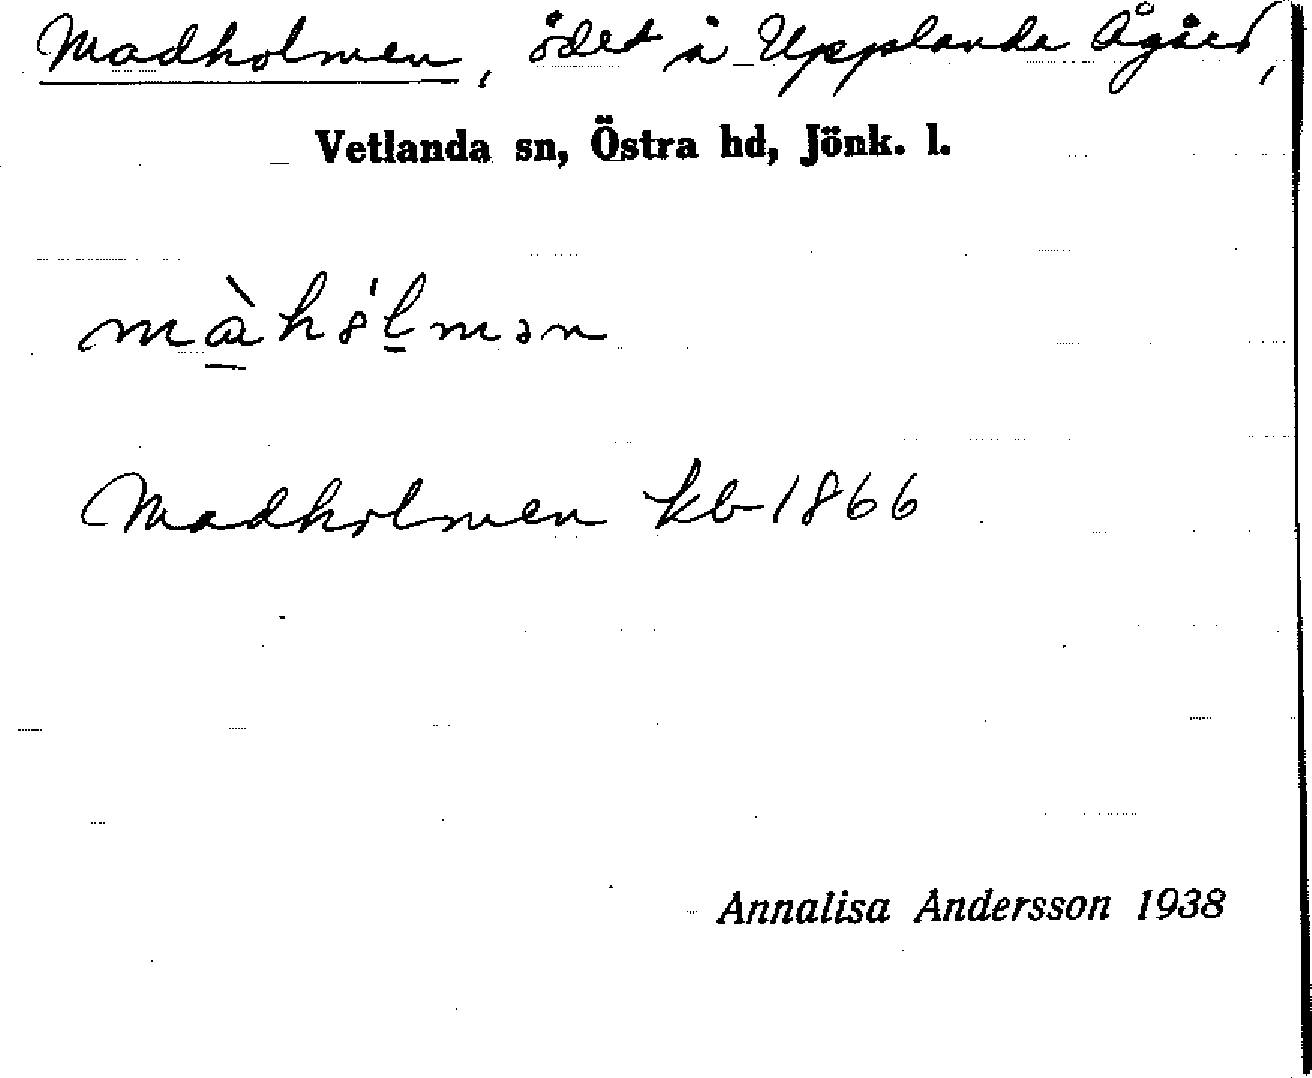 Madholmen, ödet å Upplanda Ågård,
Vetlanda sn, Östra hd, Jönk. l.
Madholmen kb 1866
Annalisa Andersson 1938